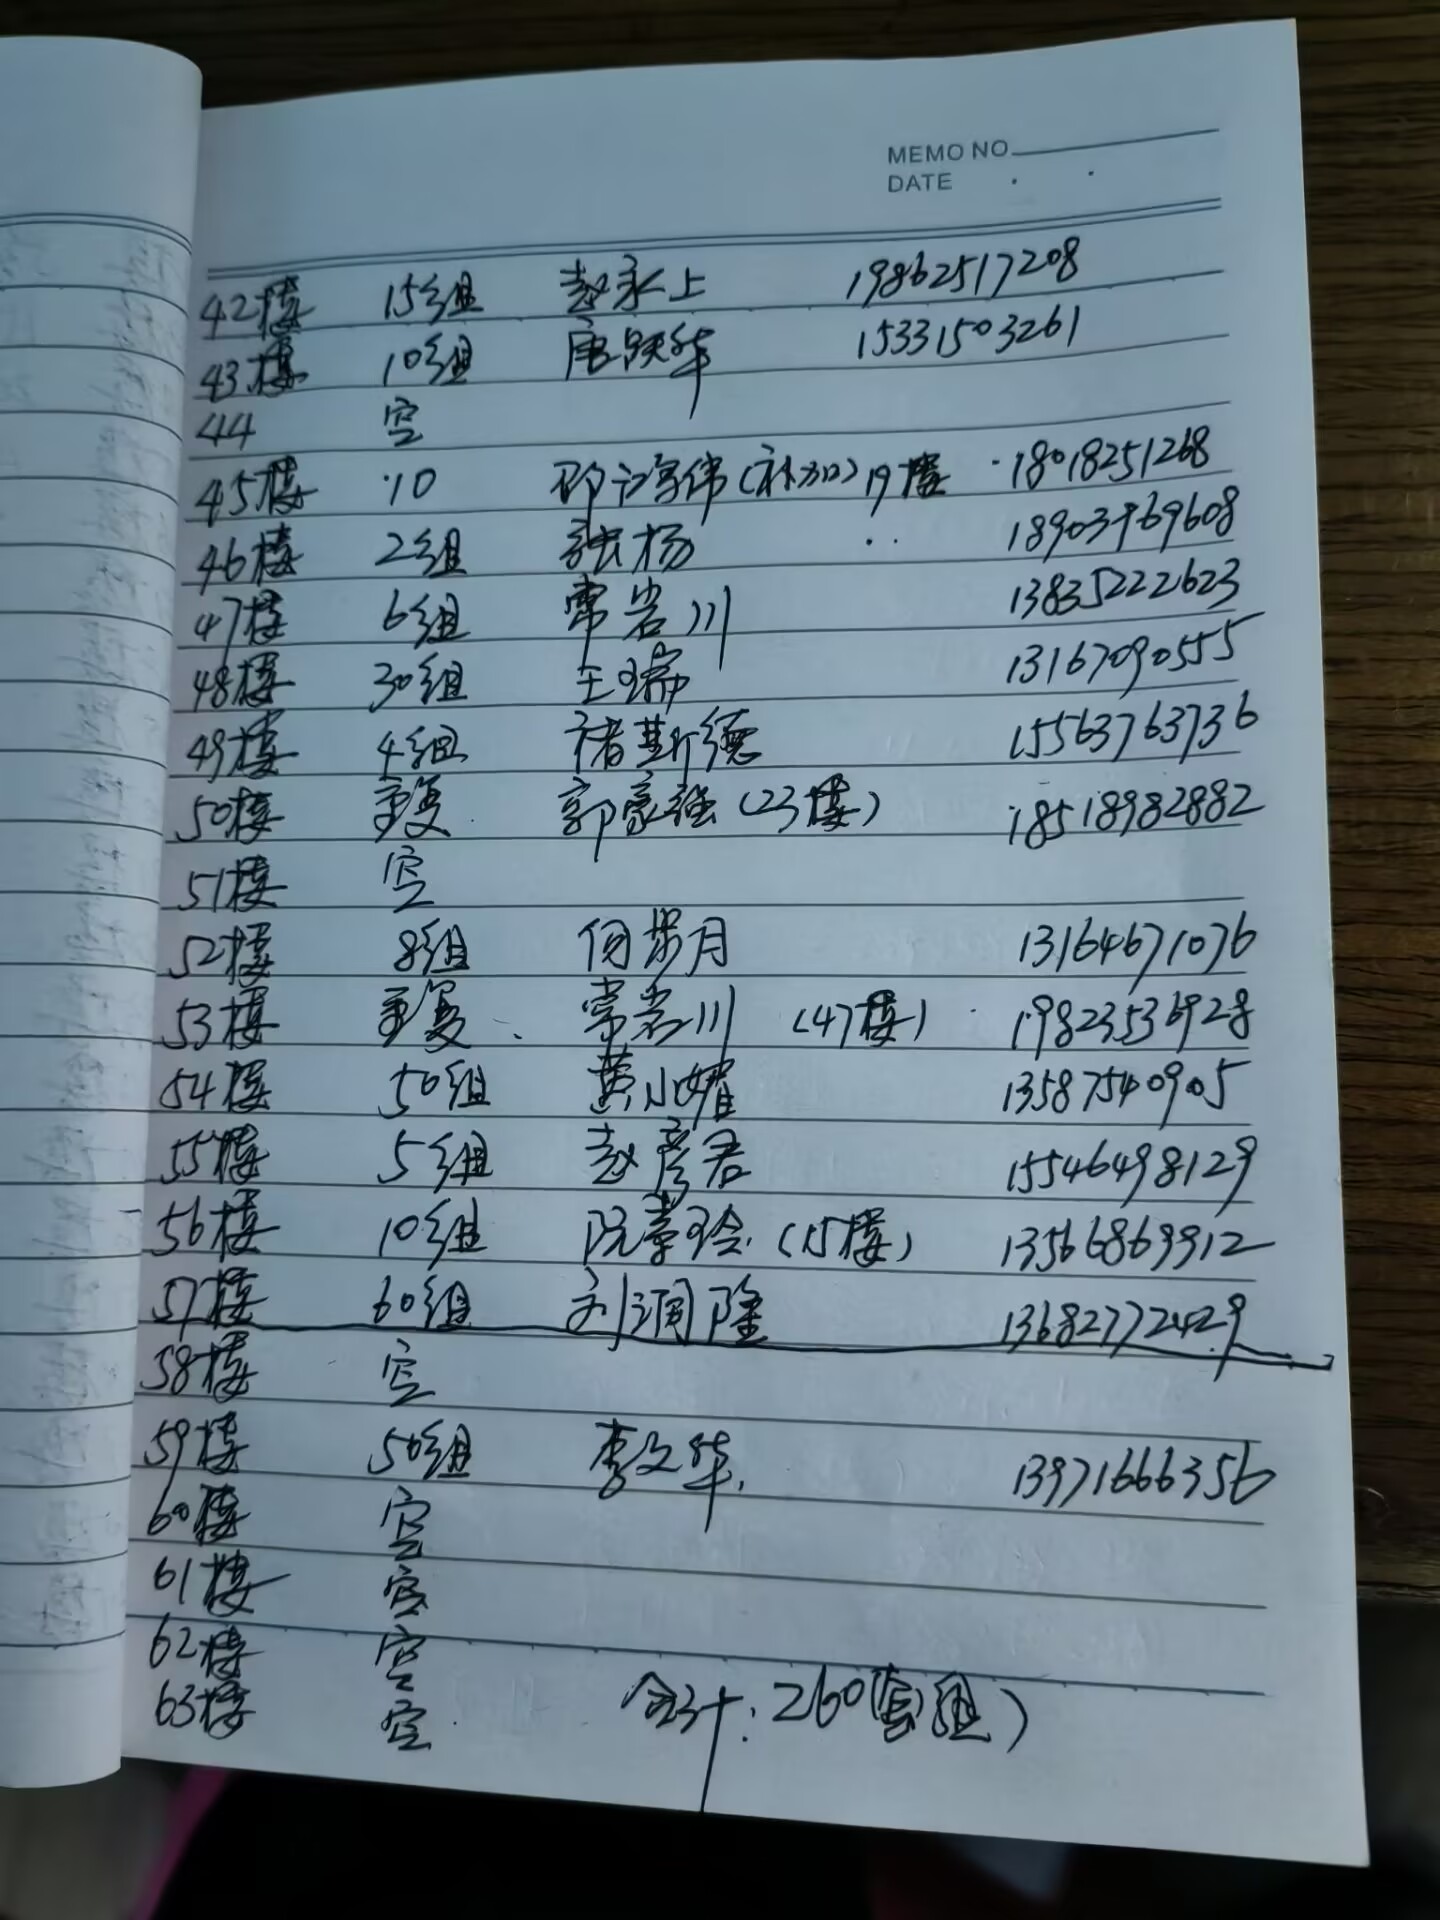 MEMO NO
DATE . .
42楼 15组 赵永上 19862517208
43楼 10组 唐跃华 15331503261
44 空
45楼 10 邵 伟(补加)19楼 18018251268
46楼 2组 张杨 18903969608
47楼 6组 常岩川 13835222623
48楼 30组 王瑞 13167090555
49楼 4组 褚斯德 15563763736
50楼 重复 郭豪强(23楼) 18518982882
51楼 空
52楼 8组 何 月 13164671076
53楼 重复、 常岩川 (47楼) 19823536928
54楼 50组 黄小 13587540905
55楼 5组 赵彦君 15546498129
56楼 10组 阮 玲(15楼) 13566869912
57楼 60组 刘润隆 13682772429
58楼 空
59楼 50组 李文华. 13971666356
60楼 空
61楼 空
62楼 空
63楼 空 合计:260(套组)